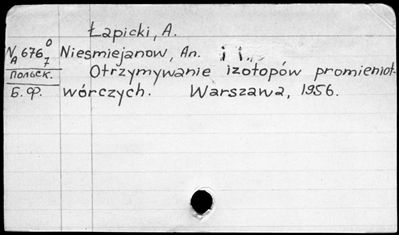 Łapicki, A.
N 676 0
A 7 Niesmiejanow, An.
Польск. Otrzymywanie izotopów promieniot-
Б.Ф. wórczych. Warszawa, 1956.